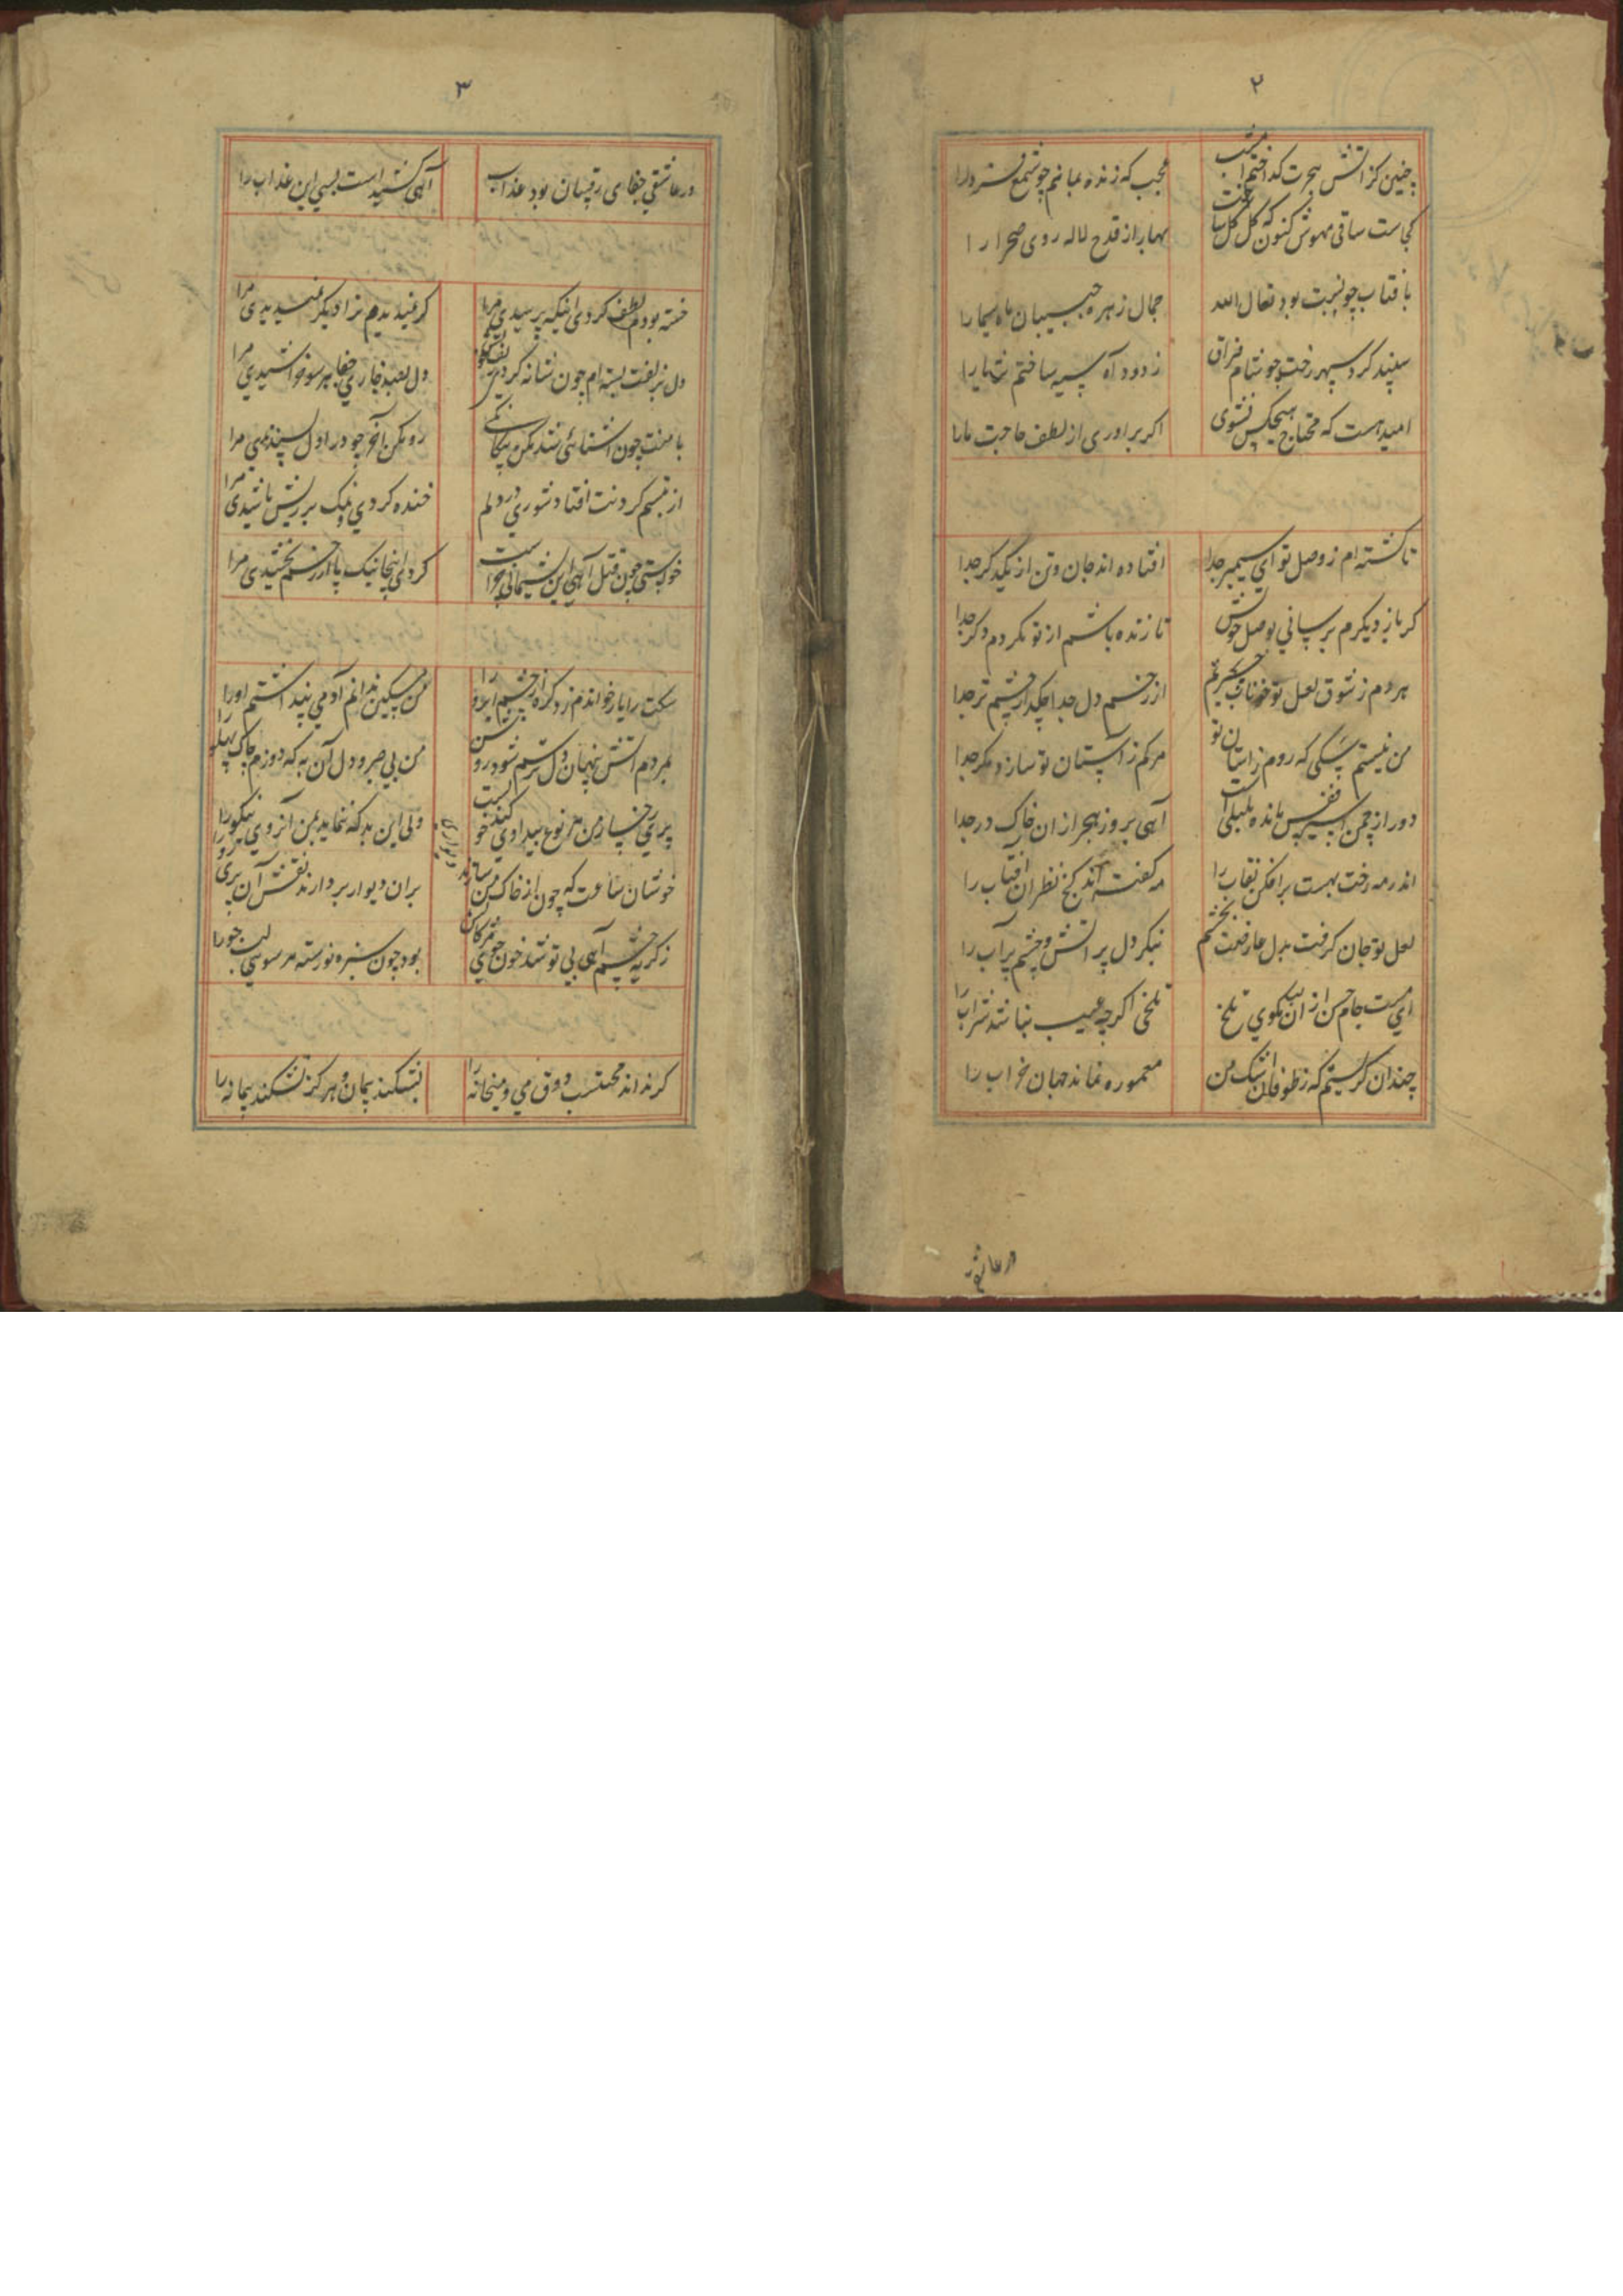 ۲
چنین کز آتش هجرت گداختم امشب
عجب که زنده بمانم چو شمع فردا را
کجاست ساقی مهوش کنون که گل گل ساخت
بهار از قدح لاله روی صحرا را
بآفتاب چو نسبت بود تعال الله
جمال زهره جبیبان ماه سیما را
سپند کرد سپهر رخت چو شام فراق
ز دود آه سیه ساختم
امید هست که محتاج هیچکس نشوی
اگر براوری از لطف حاجت ما را
تا گشته ام ز وصل تو ای سیمبر جدا
افتاده اند جان و تن از یکدگر جدا
گر باز دیگرم برسانی بوصل خویش
تا زنده باشم از تو نگردم دگر جدا
هر دم ز شوق لعل تو خوناب جگرم
از زخم دل جدا چکد از چشم تر جدا
من نیستم سگی که روم زاستان تو
مرگم ز آستان تو سازد مگر جدا
دور از چمن اسیر قفس مانده بلبلی است
آهی بروز هجر از ان خاک در جدا
اندر مه رخت بهست برافکن نقاب را
مه گفته اند کج نظران آفتاب را
لعل تو جان گرفت بدل عارضت بچشم
بنگر دل پر آتش و چشم پر آب را
ای مست جام حسن از آن لب مگوی تلخ
تلخی اگرچه عیب نباشد شراب را
چندان گریستم که ز طوفان اشک من
معموره نماند جهان خراب را
در عاشقی
۳
در عاشقی جفای رقیبان بود عذاب
آهی کشیده است بسی این عذاب را
خسته بودم لطف کردی اینکه پرسیدی مرا
گر نمیدیدم ترا دیگر نمیدیدی مرا
دل بزلفت بسته ام چون شانه کردی
دل بصد خار جفا هر سو خراشیدی مرا
با منت چون آشنائی شد مکن بیگانگی
رو مکن آخر چو در اول پسندیدی مرا
از تبسم کردنت افتاد شوری در دلم
خنده کردی و نمک بر ریش پاشیدی مرا
خواستی چون قتل آهی این پشیمانی چراست
کرده اینجا نیک یا از رحم بخشیدی مرا
سگت را یار خواندم زد گره از خشم ابرو را
من مسکین ندانم آدمی پنداشتم او را
بهر دم آتش پنهان دل ترسم شود روشن
من بی صبر و دل آن به که دوزم چاک پهلو را
پری رخسار من هر نوع بیدادی کند خوبست
ولی این بد که ننماید بمن آن روی نیکو را
خوش آن ساعت که چون از خاک من سازند دیواری
بران دیوار بردارند نقش آن پری رو را
ز گریه چشم آهی بی تو شد خون جوی مژگانش
بود چون سبزه نورسته هر سوئی لب جو را
گر نداند محتسب ذوق می و میخانه را
بشکند پیمان و هرگز نشکند پیمانه را